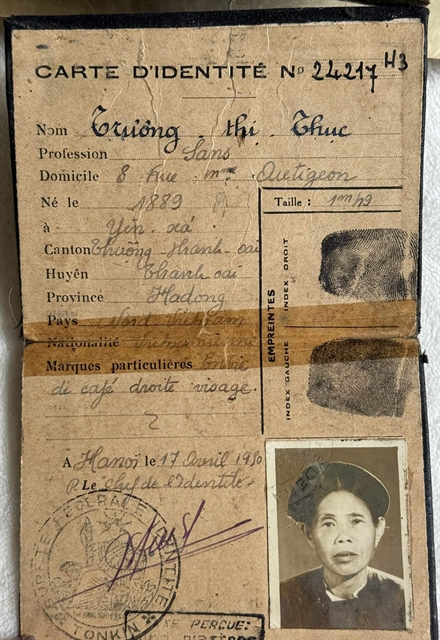 CARTE D'IDENTITÉ Nº 24217 H3
Nom Trương thị Thuc
Profession Sans
Domicile 8 Rue mme
Né le 1889
Taille : 1m49
à Yên xá
Canton Thuong thanh oai
Huyên thanh oai
Province Hadong
Pays Nord Vietnam
Nationalité
Marques particulières
de café droite visage.
EMPREINTES
INDEX GAUCHE INDEX DROIT
A Hanoi le 17 Avril 1950
P Le Chef de l'Identité
SURETE FEDERALE
TONKIN
PERCUE: